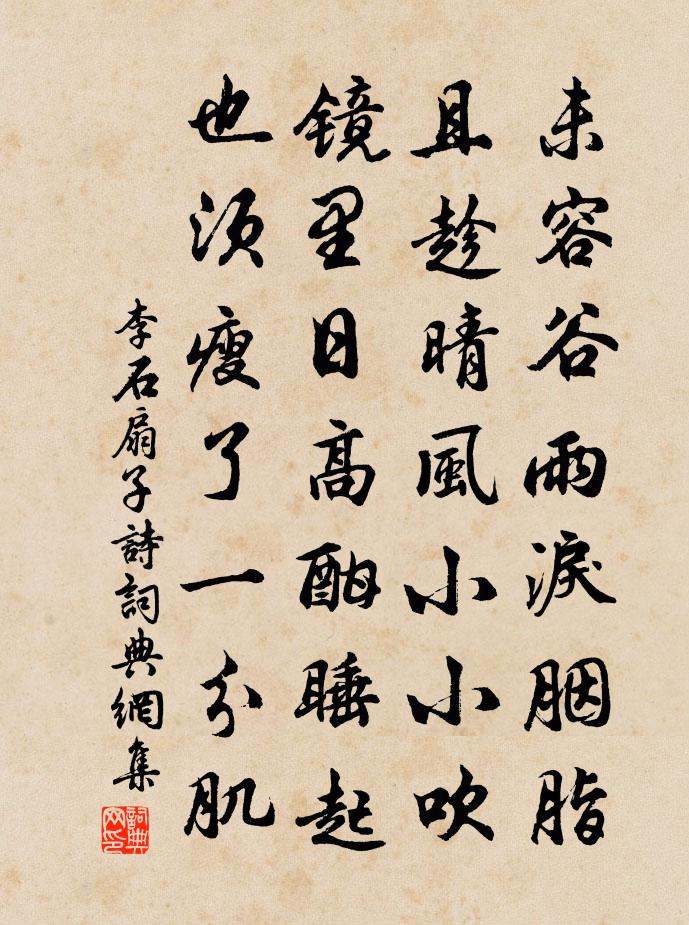 未容谷雨淚胭脂
且趁晴風小小吹
镜里日高酣睡起
也須瘦了一分肌
李石扇子詩詞典網集
詞典
网印